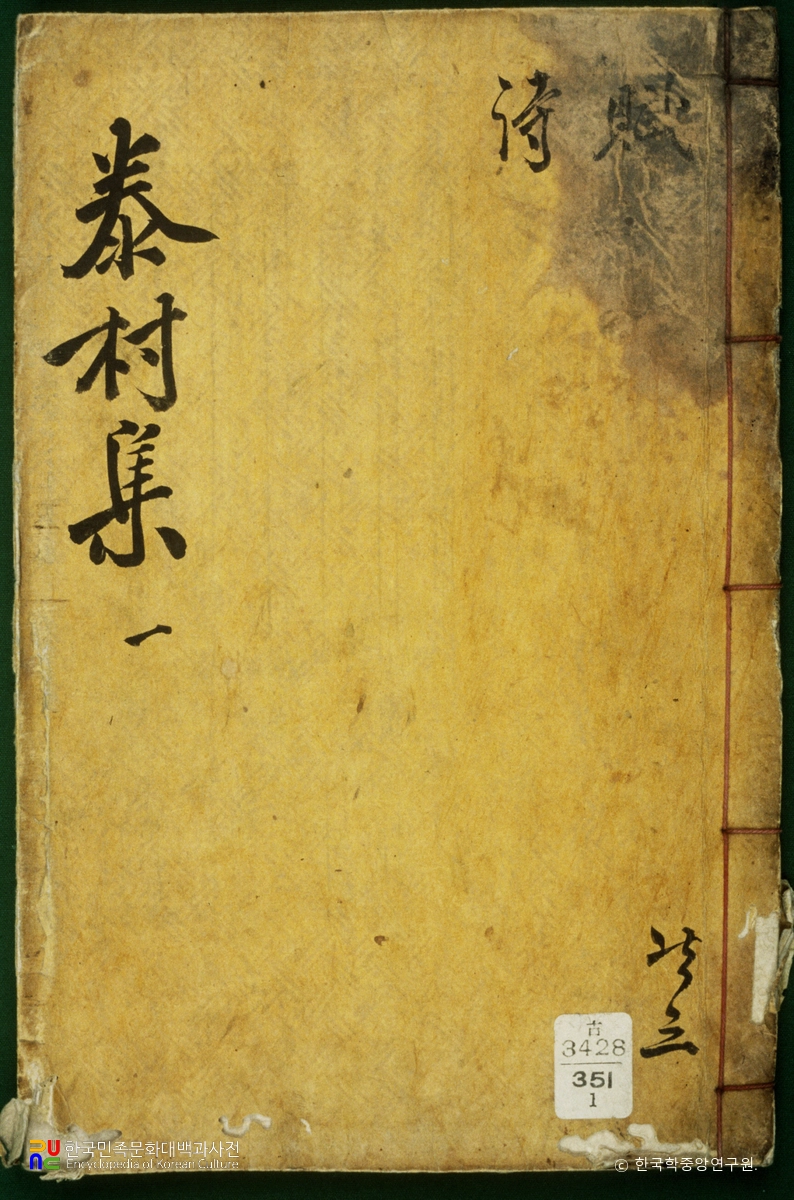 賦
詩
泰村集 一
共三
古
3428
351
1
한국민족문화대백과사전
Encyclopedia of Korean Culture
© 한국학중앙연구원.